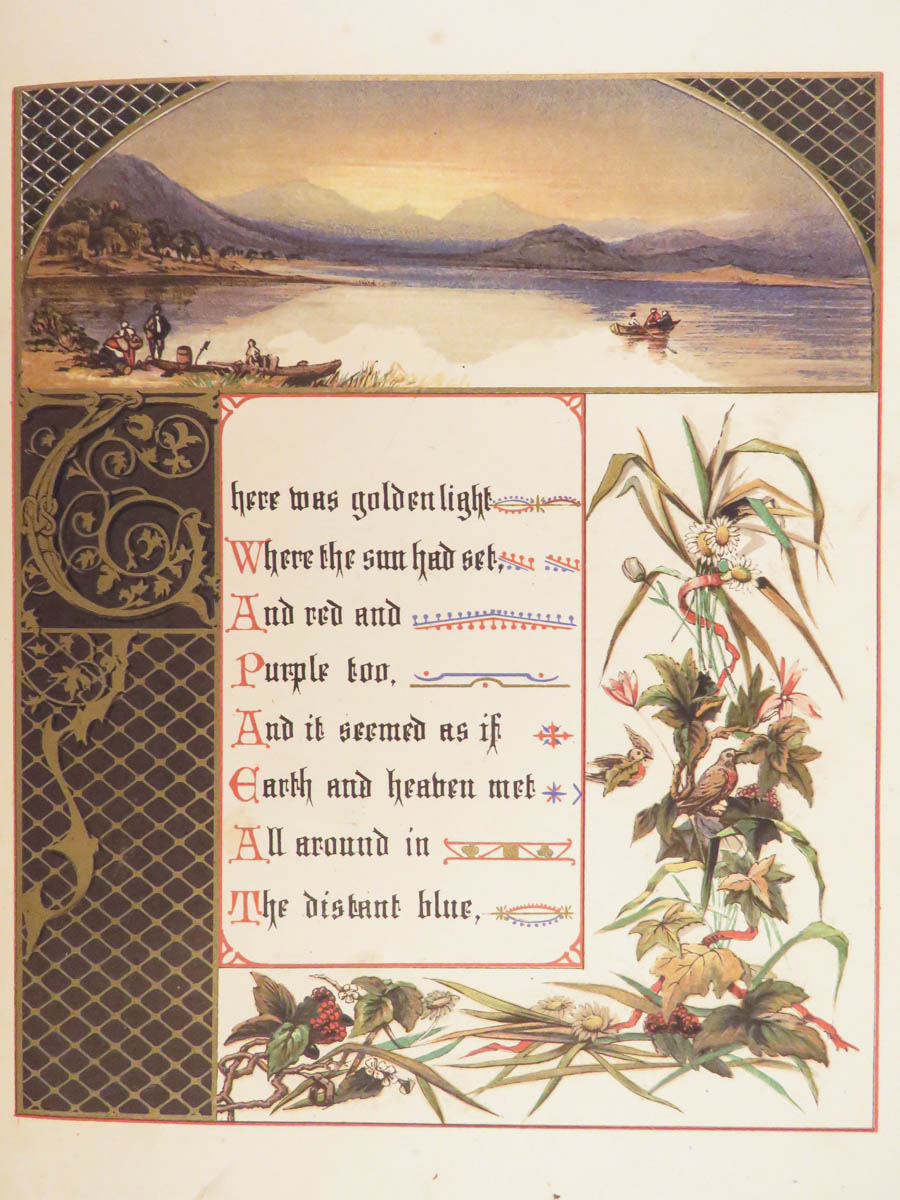 There was golden light
Where the sun had set,
And red and
Purple too,
And it seemed as if
Earth and heaven met
All around in
The distant blue,